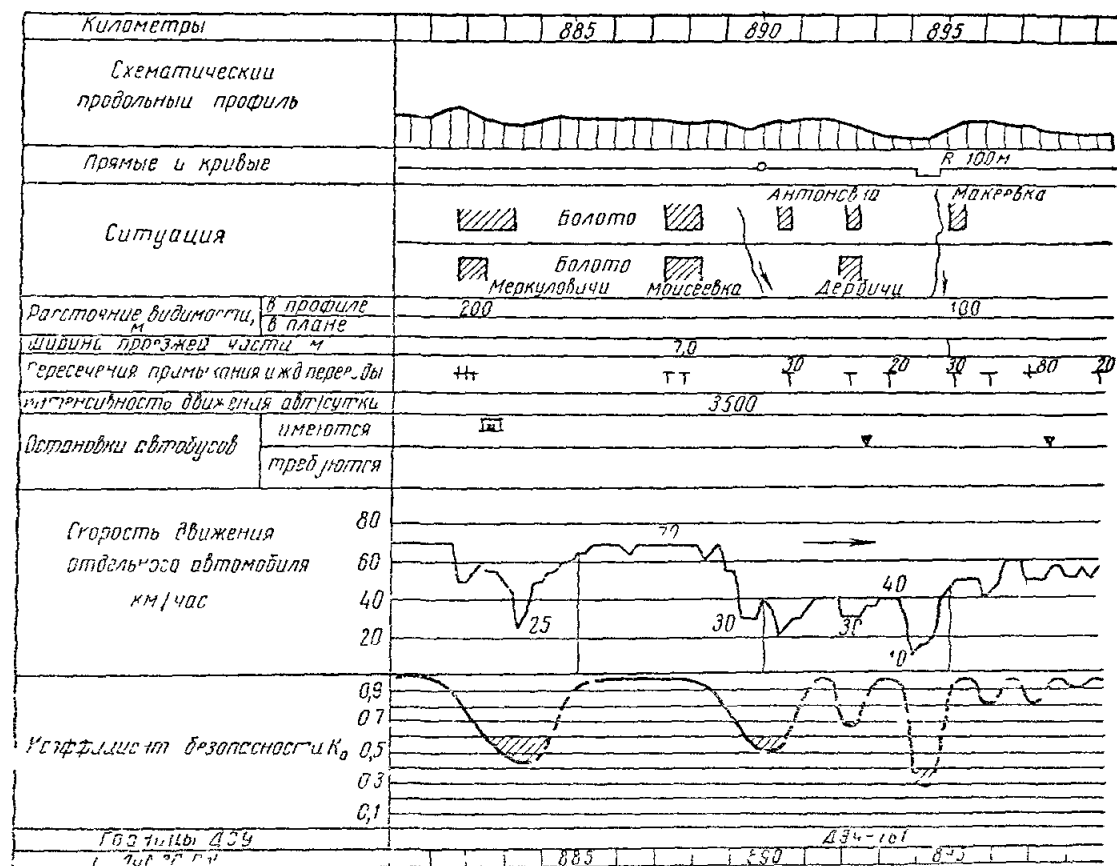 Километры 885 890 895
Схематический
продольный профиль
Прямые и кривые R 100м
Антоновка Макеевка
Ситуация Болото
Болото
Меркуловичи Моисеевка Дербичи
Расстояние видимости, м
в профиле 200 100
в плане
Ширина проезжей части м 7,0
Пересечения примыкания и жд переезды 30 20 30 80 20
Интенсивность движения авт/сутки 3500
Остановки автобусов
имеются
требуются
Скорость движения
отдельного автомобиля
км/час
80
60
40
20
70
25 30 30 40 10
Коэффициент безопасности
0,9
0,7
0,5
0,3
0,1
Границы ДЭУ
885 890 895